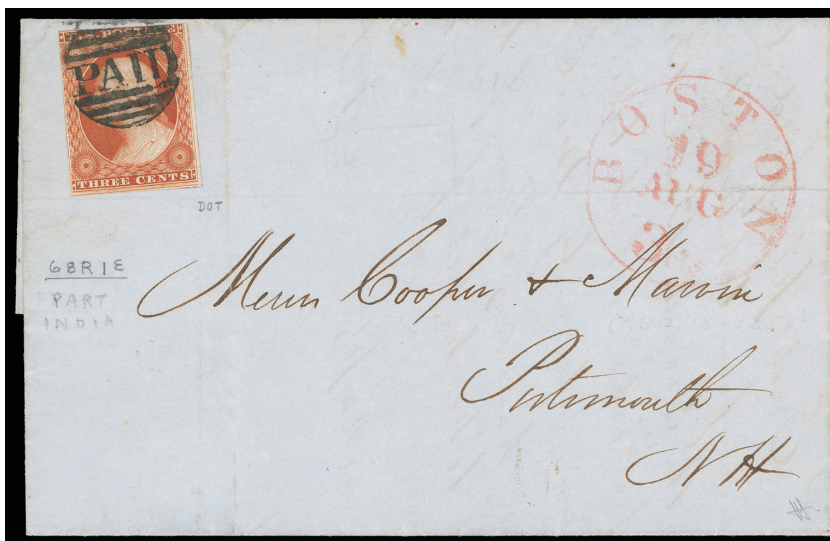 U.S. POSTAGE
PAID
THREE CENTS
DOT
BOSTON
19
AUG
3 cts
68R1E
PART
INDIA
Messrs Cooper & Marvin
Portsmouth
NH